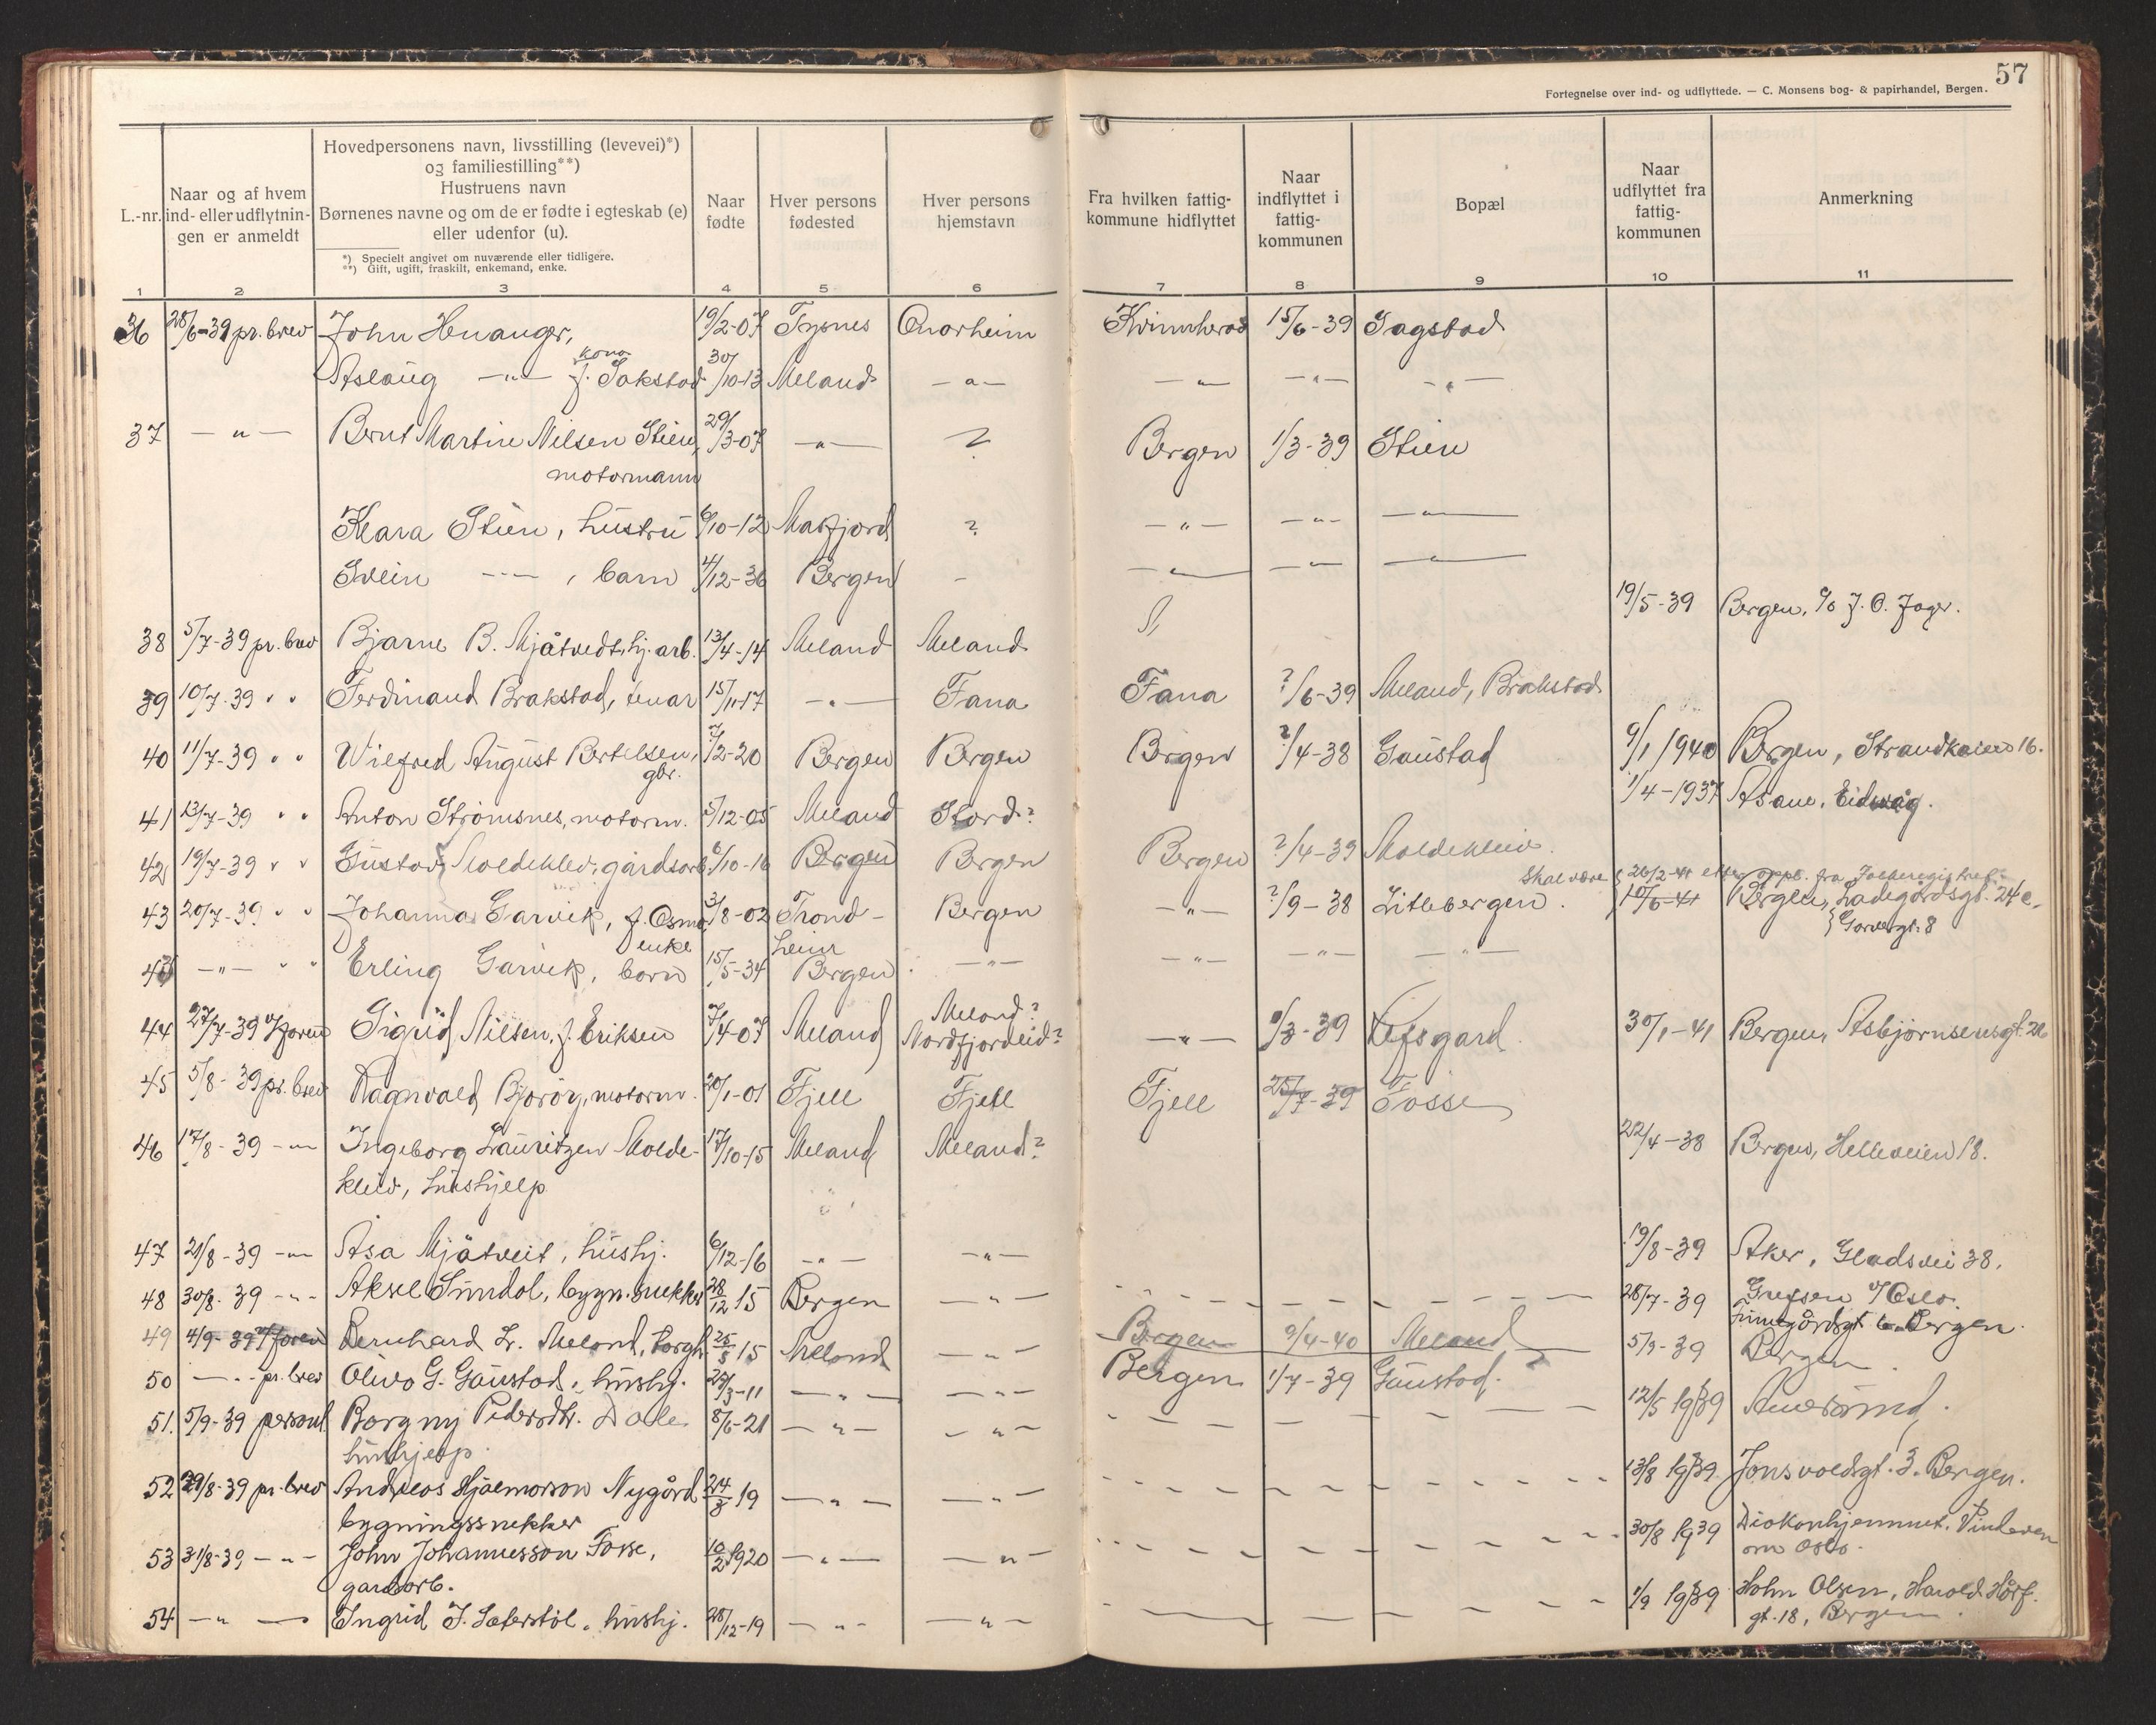 57
Fortegnelse over ind- og udflyttede. — C. Monsens bog- & papirhandel, Bergen.
L.-nr.
Naar og af hvem
ind- eller udflytnin-
gen er anmeldt
Hovedpersonens navn, livsstilling (levevei)*)
og familiestilling**)
Hustruens navn
Børnenes navne og om de er fødte i egteskab (e)
eller udenfor (u).
*) Specielt angivet om nuværende eller tidligere.
**) Gift, ugift, fraskilt, enkemand, enke.
Naar
fødte
Hver persons
fødested
Hver persons
hjemstavn
Fra hvilken fattig-
kommune hidflyttet
Naar
indflyttet i
fattig-
kommunen
Bopæl
Naar
udflyttet fra
fattig-
kommunen
Anmerkning
1 2 3 4 5 6 7 8 9 10 11
36 28/6-39 pr. brev John Huanger, 19/2-07 Tysnes Onarheim Kvinnherad 15/6-39 Sagstad
kona
Aslaug —"— f. Sakstad 30/10-13 Meland —"— —"— —"— —"—
37 —"— Bernt Martin Nilsen Stien, 29/3-07 —"— ? Bergen 1/3-39 Stien
motormann
Klara Stien, hustru 6/10-12 Masfjord ? —"— —"— —"—
Svein —"—, barn 4/12-36 Bergen - —"— —"— —"—
38 5/7-39 pr. brev Bjarne B. Mjåtvedt, hj. arb. 13/4-14 Meland Meland 19/5-39 Bergen, c/o J. O. Jager.
39 10/7-39 " " Ferdinand Brakstad, 15/11-17 —"— Fana Fana ?/6-39 Meland, Brakstad
40 11/7-39 " " Wilfred August Bertelsen, ?/2-20 Bergen Bergen Bergen ?/4-38 Gaustad 9/1 1940 Bergen, Strandkaien 16.
gbr.
41 13/7-39 " " Anton Strømsnes, motorm. 5/12-05 Meland Stord? 1/4-1937 Åsane, Eidsvåg.
42 19/7-39 " " Gustav Moldeklev, gårdsarb. 6/10-16 Bergen Bergen Bergen ?/4-39 Moldekleiv.
Skal være 26/2-41 etter oppl. fra Folkeregistret
43 20/7-39 " " Johanna Garvik, f. Osmo, 3/8-02 Trond- Bergen —"— ?/9-38 Litlebergen. 10/6-41 Bergen, Ladegårdsgt. 24 c.
enke heim Garvergt. 8
43 —"— " " Erling Garvik, born 15/5-34 Bergen —"— —"— —"— —"—
44 27/7-39 Sigrid Nilsen, f. Eriksen 7/4-07 Meland Meland? Nordfjordeid? —"— 9/3-39 Lefsgard 30/1-41 Bergen, Asbjørnsensgt. 26
45 5/8-39 pr. brev Ragnvald Bjorøy, motorm. 20/1-01 Fjell Fjell Fjell 25/7-39 Fosse
46 17/8-39 —"— Ingeborg Lauritzen Molde- 17/10-15 Meland Meland? 22/4-38 Bergen, Helleveien 18.
kleiv, hushjelp
47 21/8-39 —"— Åsa Mjåtveit, hushj. 6/12-16 —"— —"— 19/8-39 Aker, Gladsvei 38.
48 30/8-39 —"— Aksel Sundal, bygn.snekker 28/12 15 Bergen —"— 28/7-39 Grefsen v/Oslo.
Finnegårdsgt 6. Bergen.
49 4/9-39 Bernhard L. Meland, 25/5 15 Meland —"— Bergen 9/4-40 Meland 5/9-39 Bergen.
50 —"— pr. brev Olivo G. Gaustad, hushj. 25/3-11 —"— —"— Bergen 1/7-39 Gaustad.
51. 5/9-39 personl. Borgny Pedersdtr. Dale 8/6-21 —"— —"— 12/5 1939
hushjelp.
52 29/8-39 pr. brev Andreas Hjalmarson Nygård 24/3 19 —"— —"— 13/8 1939 Jonsvoldgt. 3. Bergen.
bygningssnekker
53 31/8-39 —"— John Johannesson Fosse, 10/2 1920 —"— —"— 30/8 1939 Diakonhjemmet, Vinderen
gardarb. om Oslo.
54 —"— Ingrid J. Sæterstøl, hushj. 28/12-19 —"— —"— 1/9 1939 John Olsen, Harald Hårf.
gt. 18, Bergen.